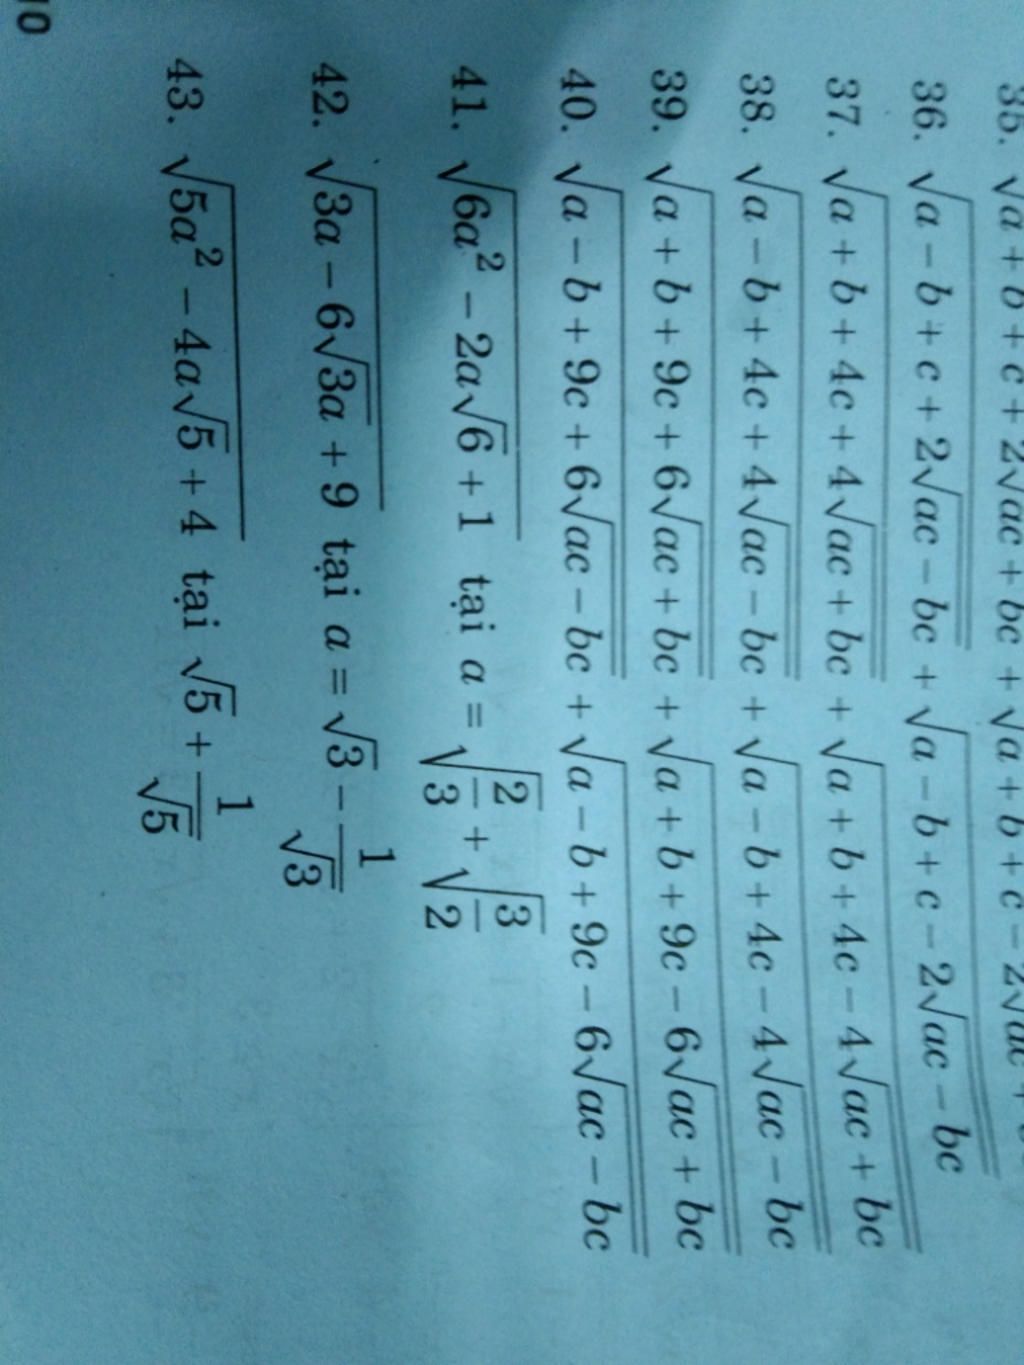 35. √(a + b + c + 2√(ac + bc)) + √(a + b + c - 2√(ac
36. √(a - b + c + 2√(ac - bc)) + √(a - b + c - 2√(ac - bc))
37. √(a + b + 4c + 4√(ac + bc)) + √(a + b + 4c - 4√(ac + bc))
38. √(a - b + 4c + 4√(ac - bc)) + √(a - b + 4c - 4√(ac - bc))
39. √(a + b + 9c + 6√(ac + bc)) + √(a + b + 9c - 6√(ac + bc))
40. √(a - b + 9c + 6√(ac - bc)) + √(a - b + 9c - 6√(ac - bc))
41. √(6a² - 2a√6 + 1) tại a = √(2/3) + √(3/2)
42. √(3a - 6√(3a) + 9) tại a = √3 - 1/√3
43. √(5a² - 4a√5 + 4) tại √5 + 1/√5
10